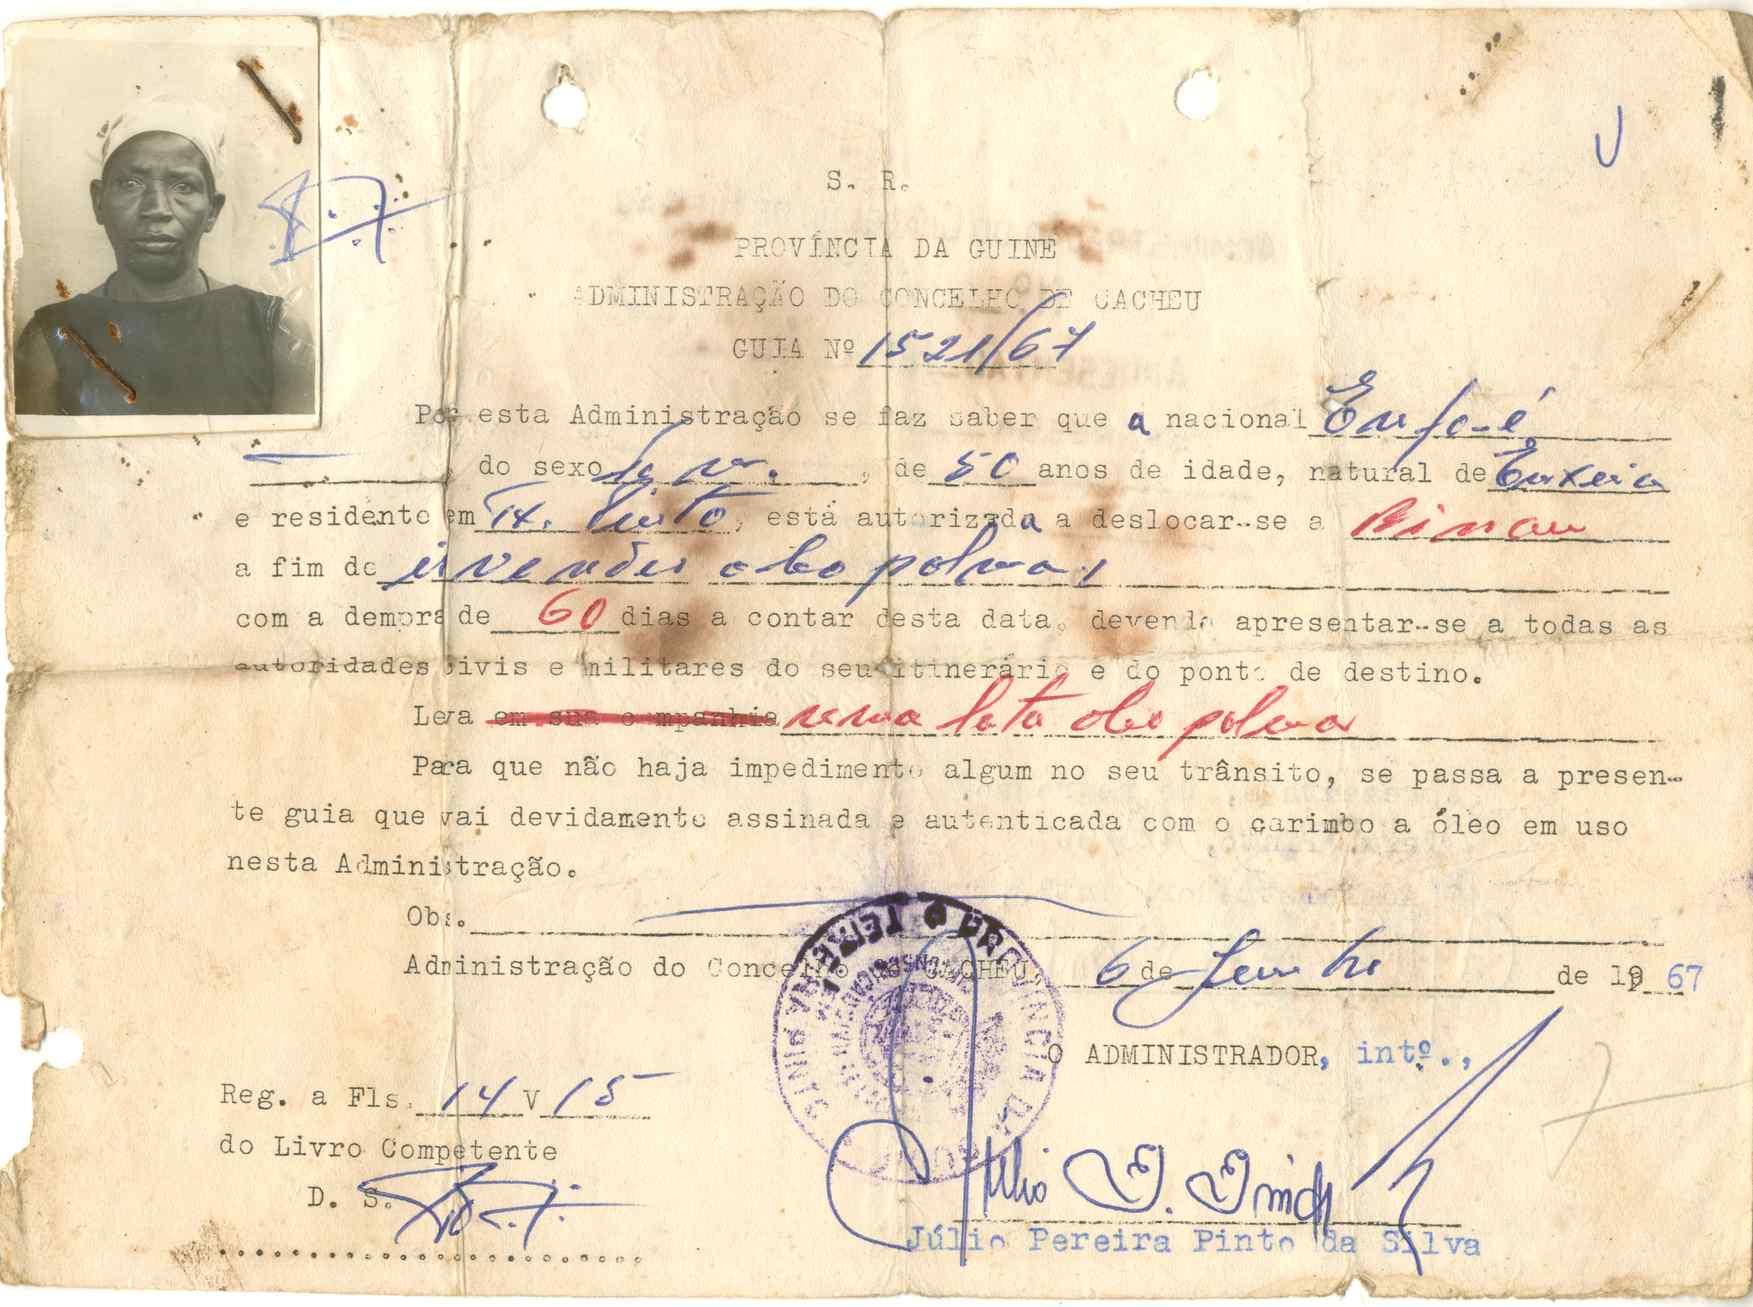 S. R.
PROVÍNCIA DA GUINE
ADMINISTRAÇÃO DO CONCELHO DE CACHEU
GUIA Nº 1521/67
Por esta Administração se faz saber que a nacional
, do sexo fem. , de 50 anos de idade, natural de
e residente em está autorizada a deslocar-se a Binau
a fim de ir vender oleo palma
com a demora de 60 dias a contar desta data, devendo apresentar-se a todas as
autoridades civis e militares do seu itinerário e do ponto de destino.
Leva em sua companhia uma lata oleo palma
Para que não haja impedimento algum no seu trânsito, se passa a presen-
te guia que vai devidamente assinada e autenticada com o carimbo a óleo em uso
nesta Administração.
Obs.
Administração do Concelho de CACHEU, 6 de Junho de 1967
O ADMINISTRADOR, intº.,
Reg. a Fls. 14 V 15
do Livro Competente
D. S.
Júlio Pereira Pinto da Silva